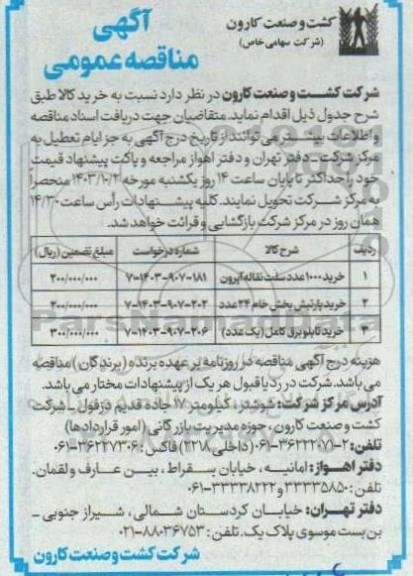 کشت و صنعت کارون
(شرکت سهامی خاص)
آگهی
مناقصه عمومی
شرکت کشت و صنعت کارون در نظر دارد نسبت به خرید کالا طبق
شرح جدول ذیل اقدام نماید. متقاضیان جهت دریافت اسناد مناقصه
و اطلاعات بیشتر می توانند از تاریخ درج آگهی به جز ایام تعطیل به
مرکز شرکت - دفتر تهران و دفتر اهواز مراجعه و پاکت پیشنهاد قیمت
خود را حداکثر تا پایان ساعت ۱۴ روز یکشنبه مورخه ۱۴۰۳/۱۰/۲ منحصراً
به مرکز شرکت تحویل نمایند. کلیه پیشنهادات رأس ساعت ۱۴/۳۰
همان روز در مرکز شرکت بازگشایی و قرائت خواهد شد.
ردیف شرح کالا شماره درخواست مبلغ تضمین (ریال)
۱ خرید ۱۰۰۰ عدد سفت نقاله آپرون ۷-۱۴۰۳-۹۰۷-۱۸۱ ۲۰۰/۰۰۰/۰۰۰
۲ خرید پارتیش پخش خام ۲۴ عدد ۷-۱۴۰۳-۹۰۷-۲۰۲ ۲۰۰/۰۰۰/۰۰۰
۳ خرید تابلو برق کامل (یک عدد) ۷-۱۴۰۳-۹۰۷-۲۰۶ ۳۰۰/۰۰۰/۰۰۰
هزینه درج آگهی مناقصه در روزنامه بر عهده برنده (برندگان) مناقصه
می باشد. شرکت در رد یا قبول هر یک از پیشنهادات مختار می باشد.
آدرس مرکز شرکت: شوشتر، کیلومتر ۱۷ جاده قدیم دزفول - شرکت
کشت و صنعت کارون، حوزه مدیریت بازرگانی (امور قراردادها)
تلفن: ۲-۰۶۱-۳۶۲۲۲۰۷۱ (داخلی ۲۲۱۸) فاکس: ۰۶۱-۳۶۲۲۷۳۰۶
دفتر اهواز: امانیه، خیابان سقراط، بین عارف و لقمان.
تلفن: ۳۳۳۳۵۸۵۰ و ۰۶۱-۳۳۳۳۸۲۲۲
دفتر تهران: خیابان کردستان شمالی، شیراز جنوبی -
بن بست موسوی پلاک یک. تلفن: ۰۲۱-۸۸۰۳۶۷۵۳
شرکت کشت و صنعت کارون